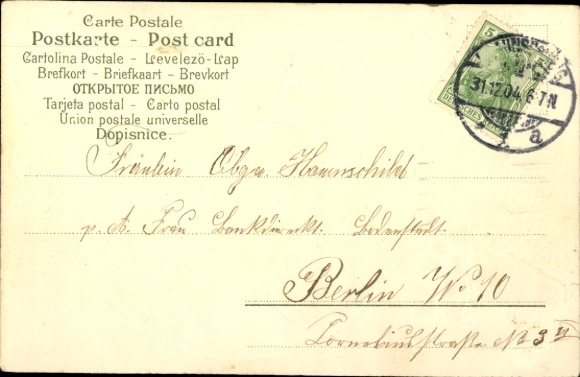 Carte Postale
Postkarte - Post card
Cartolina Postale - Levelezö-Lap
Brefkort - Briefkaart - Brevkort
ОТКРЫТОЕ ПИСЬМО
Tarjeta postal - Carto postal
Union postale universelle
Dopisnice.
5
31.12.04. 6-7N
a
Fräulein Hauenschild
p. A. Frau Bankdirekt. Bodenstedt.
Berlin W. 10
Corneliusstraße No 3